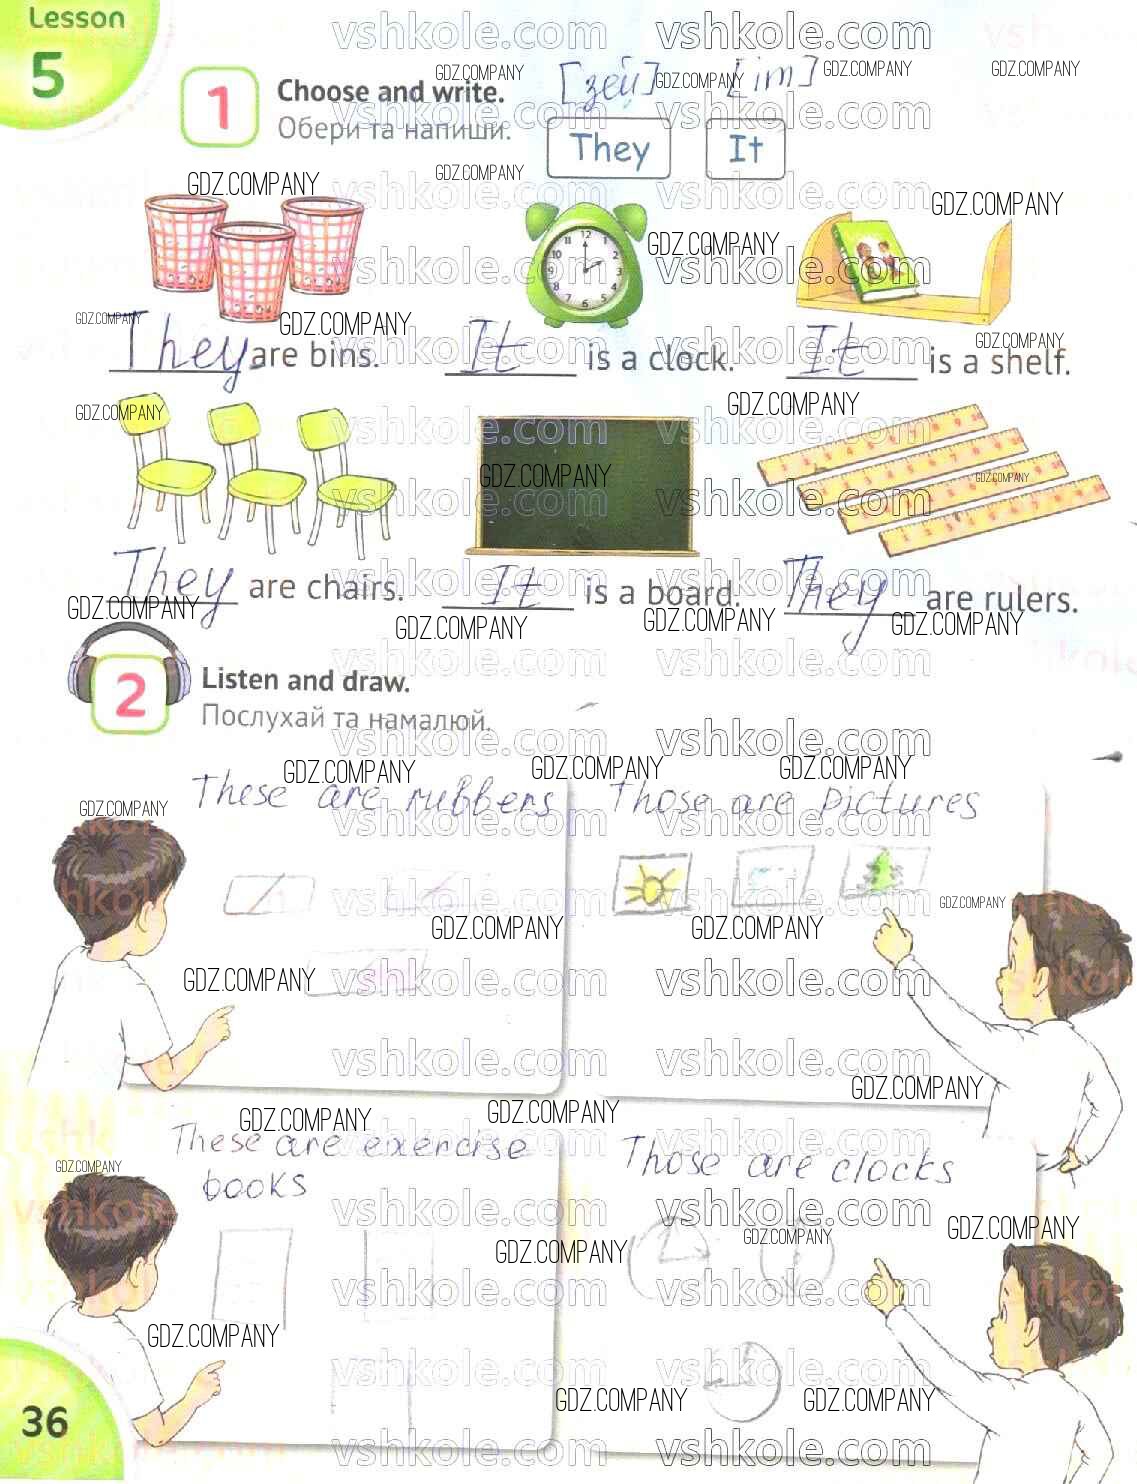 Lesson
5
1
Choose and write.
Обери та напиши.
[зей] [іт]
They It
They are bins. It is a clock. It is a shelf.
They are chairs. It is a board. They are rulers.
2
Listen and draw.
Послухай та намалюй.
These are rubbers Those are pictures
These are exercise
books
Those are clocks
36
vshkole.com
GDZ.COMPANY